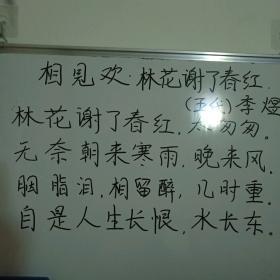 相见欢·林花谢了春红.
(五代)李煜
林花谢了春红.太匆匆.
无奈朝来寒雨,晚来风.
胭脂泪,相留醉,几时重.
自是人生长恨,水长东.